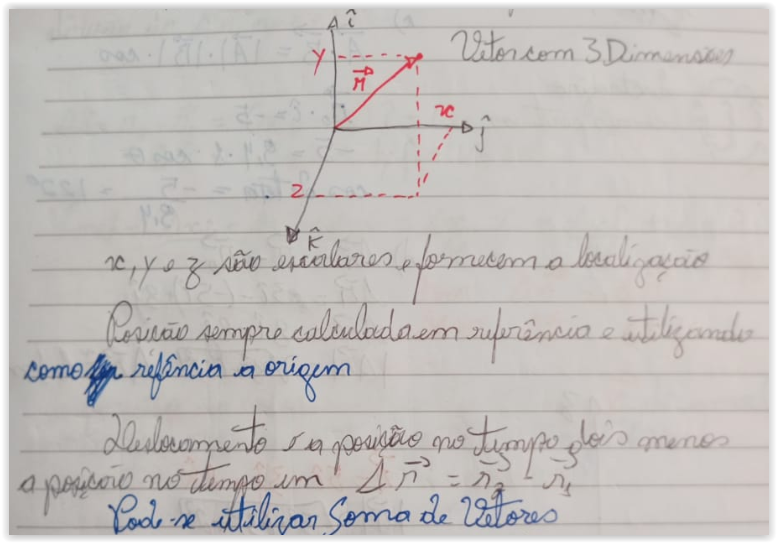 î
y
Vetor com 3 Dimensões
r⃗
x
ĵ
z
k̂
x, y e z são escalares e fornecem a localização
Posição sempre calculada em referência e utilizando
como refência a origem
Deslocamento é a posição no tempo dois menos
a posição no tempo um Δr⃗ = r⃗₂ - r⃗₁
Pode-se utilizar Soma de Vetores